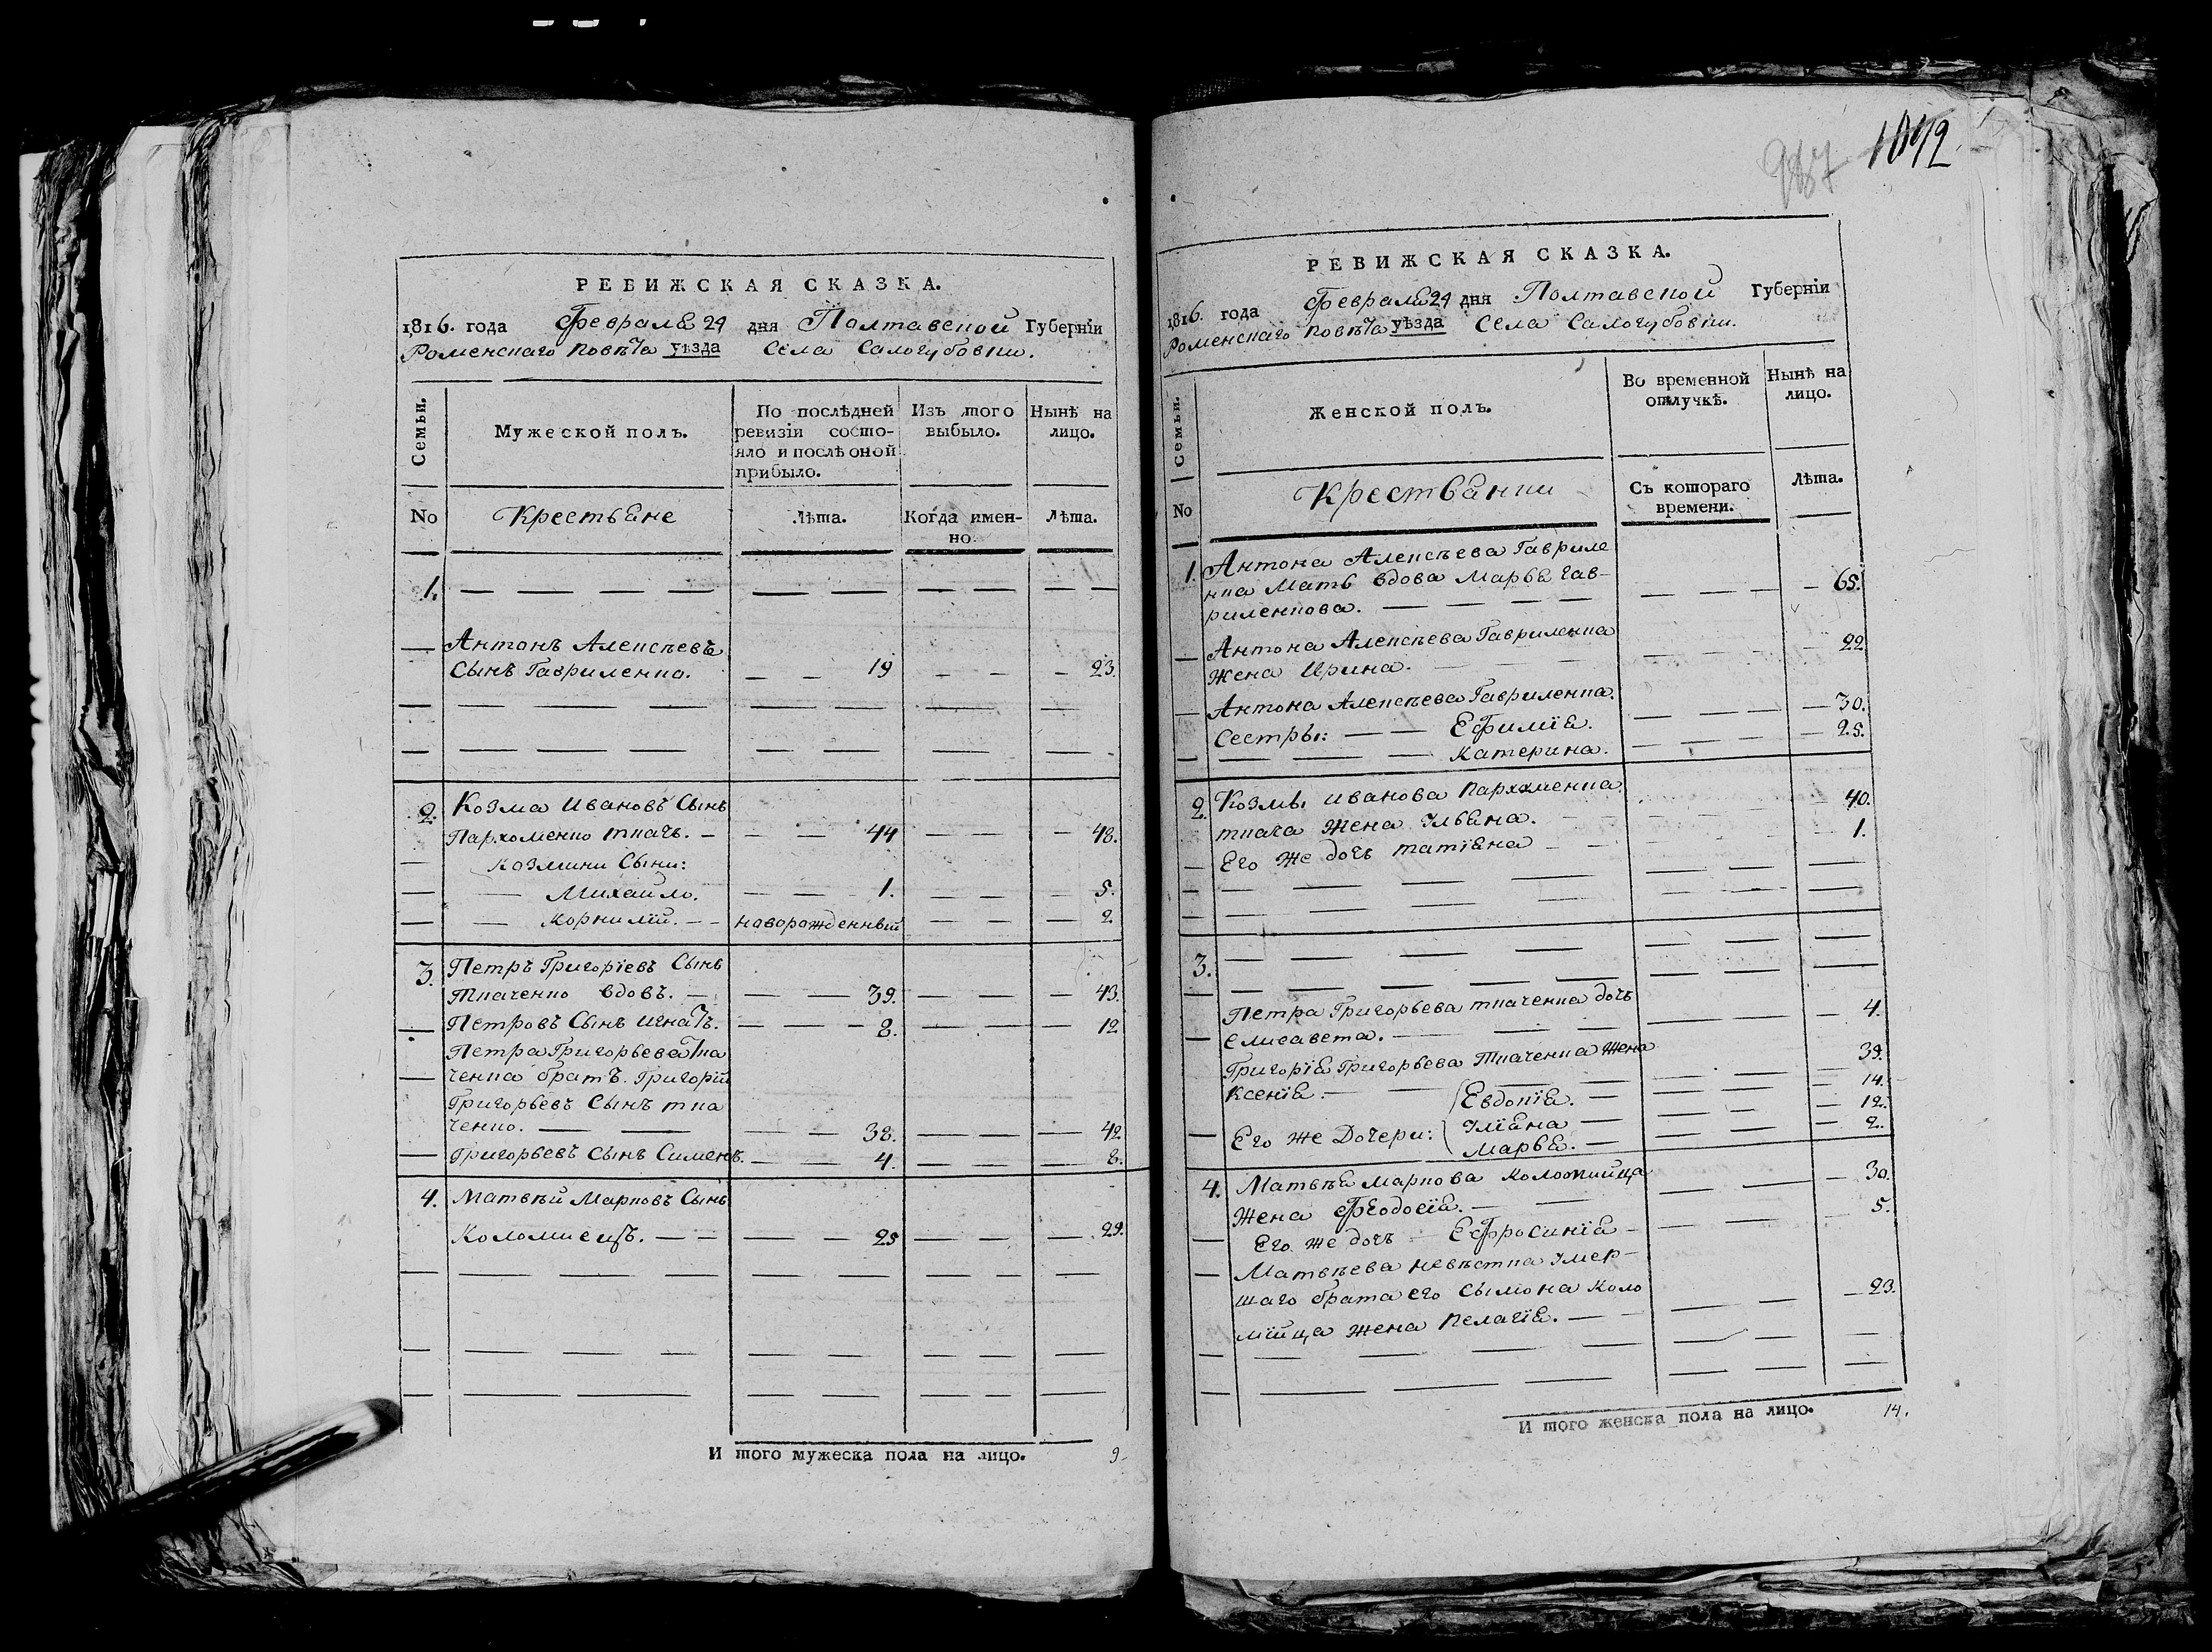 РЕВИЖСКАЯ СКАЗКА.
1816. года Февраля 24 дня Полтавской Губерніи
Роменскаго повѣта уѣзда Села Салогубовки.
Семьи. Мужеской полъ. По послѣдней ревизіи состояло и послѣ оной прибыло. Изъ того выбыло. Нынѣ на лицо.
No Крестьяне Лѣта. Когда именно. Лѣта.
1.
Антонъ Алексѣевъ
Сынъ Гавриленко. 19 23.
2. Козма Ивановъ Сынъ
Пархоменко ткачь. 44 48.
Козмини Сыни:
Михайло. 1. 5.
Корнилій. новорожденный 2
3. Петръ Григоріевъ Сынъ
Ткаченко вдовъ. 39. 43.
Петровъ Сынъ Игнатъ. 8. 12
Петра Григорьева Тка
ченка братъ Григорій
Григорьевъ Сынъ тка
ченко. 38. 42
Григорьевъ Сынъ Сименъ. 4. 8.
4. Матвѣй Марковъ Сынъ
Коломиецъ. 25 29.
И того мужеска пола на лицо. 9
987 1042
РЕВИЖСКАЯ СКАЗКА.
1816. года Февраля 24 дня Полтавской Губерніи
Роменскаго повѣта уѣзда Села Салогубовки.
Семьи. Женской полъ. Во временной отлучкѣ. Нынѣ на лицо.
No Крестьянки Съ котораго времени. Лѣта.
1. Антона Алексѣева Гавриле
нка Мать вдова Марья Гав-
риленкова. 65.
Антона Алексѣева Гавриленка
Жена Ирина. 22
Антона Алексѣева Гавриленка.
Сестры: Ефимія. 30.
Катерина. 25.
2. Козмы Иванова Пархоменка
ткача Жена Ульяна. 40.
Его же дочь Татіяна 1.
3.
Петра Григорьева ткаченка дочь
Елисавета. 4.
Григорія Григорьева Ткаченка Жена
Ксенія. 39.
Евдокія. 14.
Его же Дочери: Уліяна 12.
Марья. 2.
4. Матвѣя Маркова Коломийца
Жена Феодосія. 30.
Его же дочь Ефросинія 5.
Матвѣева невѣстка умер-
шаго брата его Сымона Коло
мійца жена Пелагія. 23.
И того женска пола на лицо. 14.